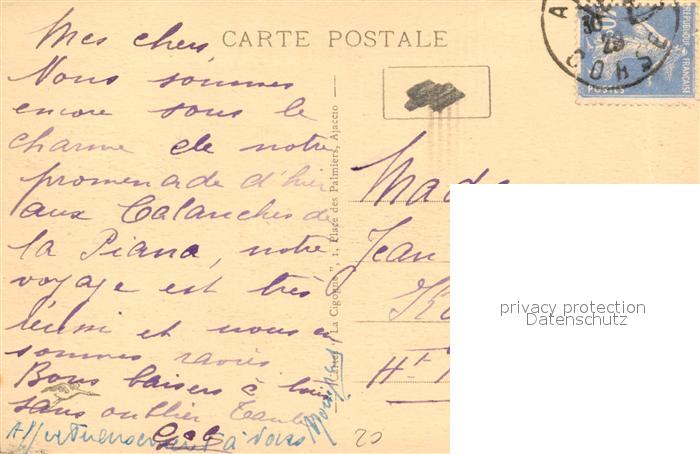 CARTE POSTALE
Mes chers,
Nous sommes
encore sous le
charme de notre
promenade d'hier
aux Calanches de
la Piana, notre
voyage est très
réussi et nous en
sommes ravis
Bons baisers à tous
sans oublier
Affectueusement à vous
La Cigogne", 1, Place des Palmiers, Ajaccio
Jean
Ht
20
30
29
CORSE
POSTES
privacy protection
Datenschutz